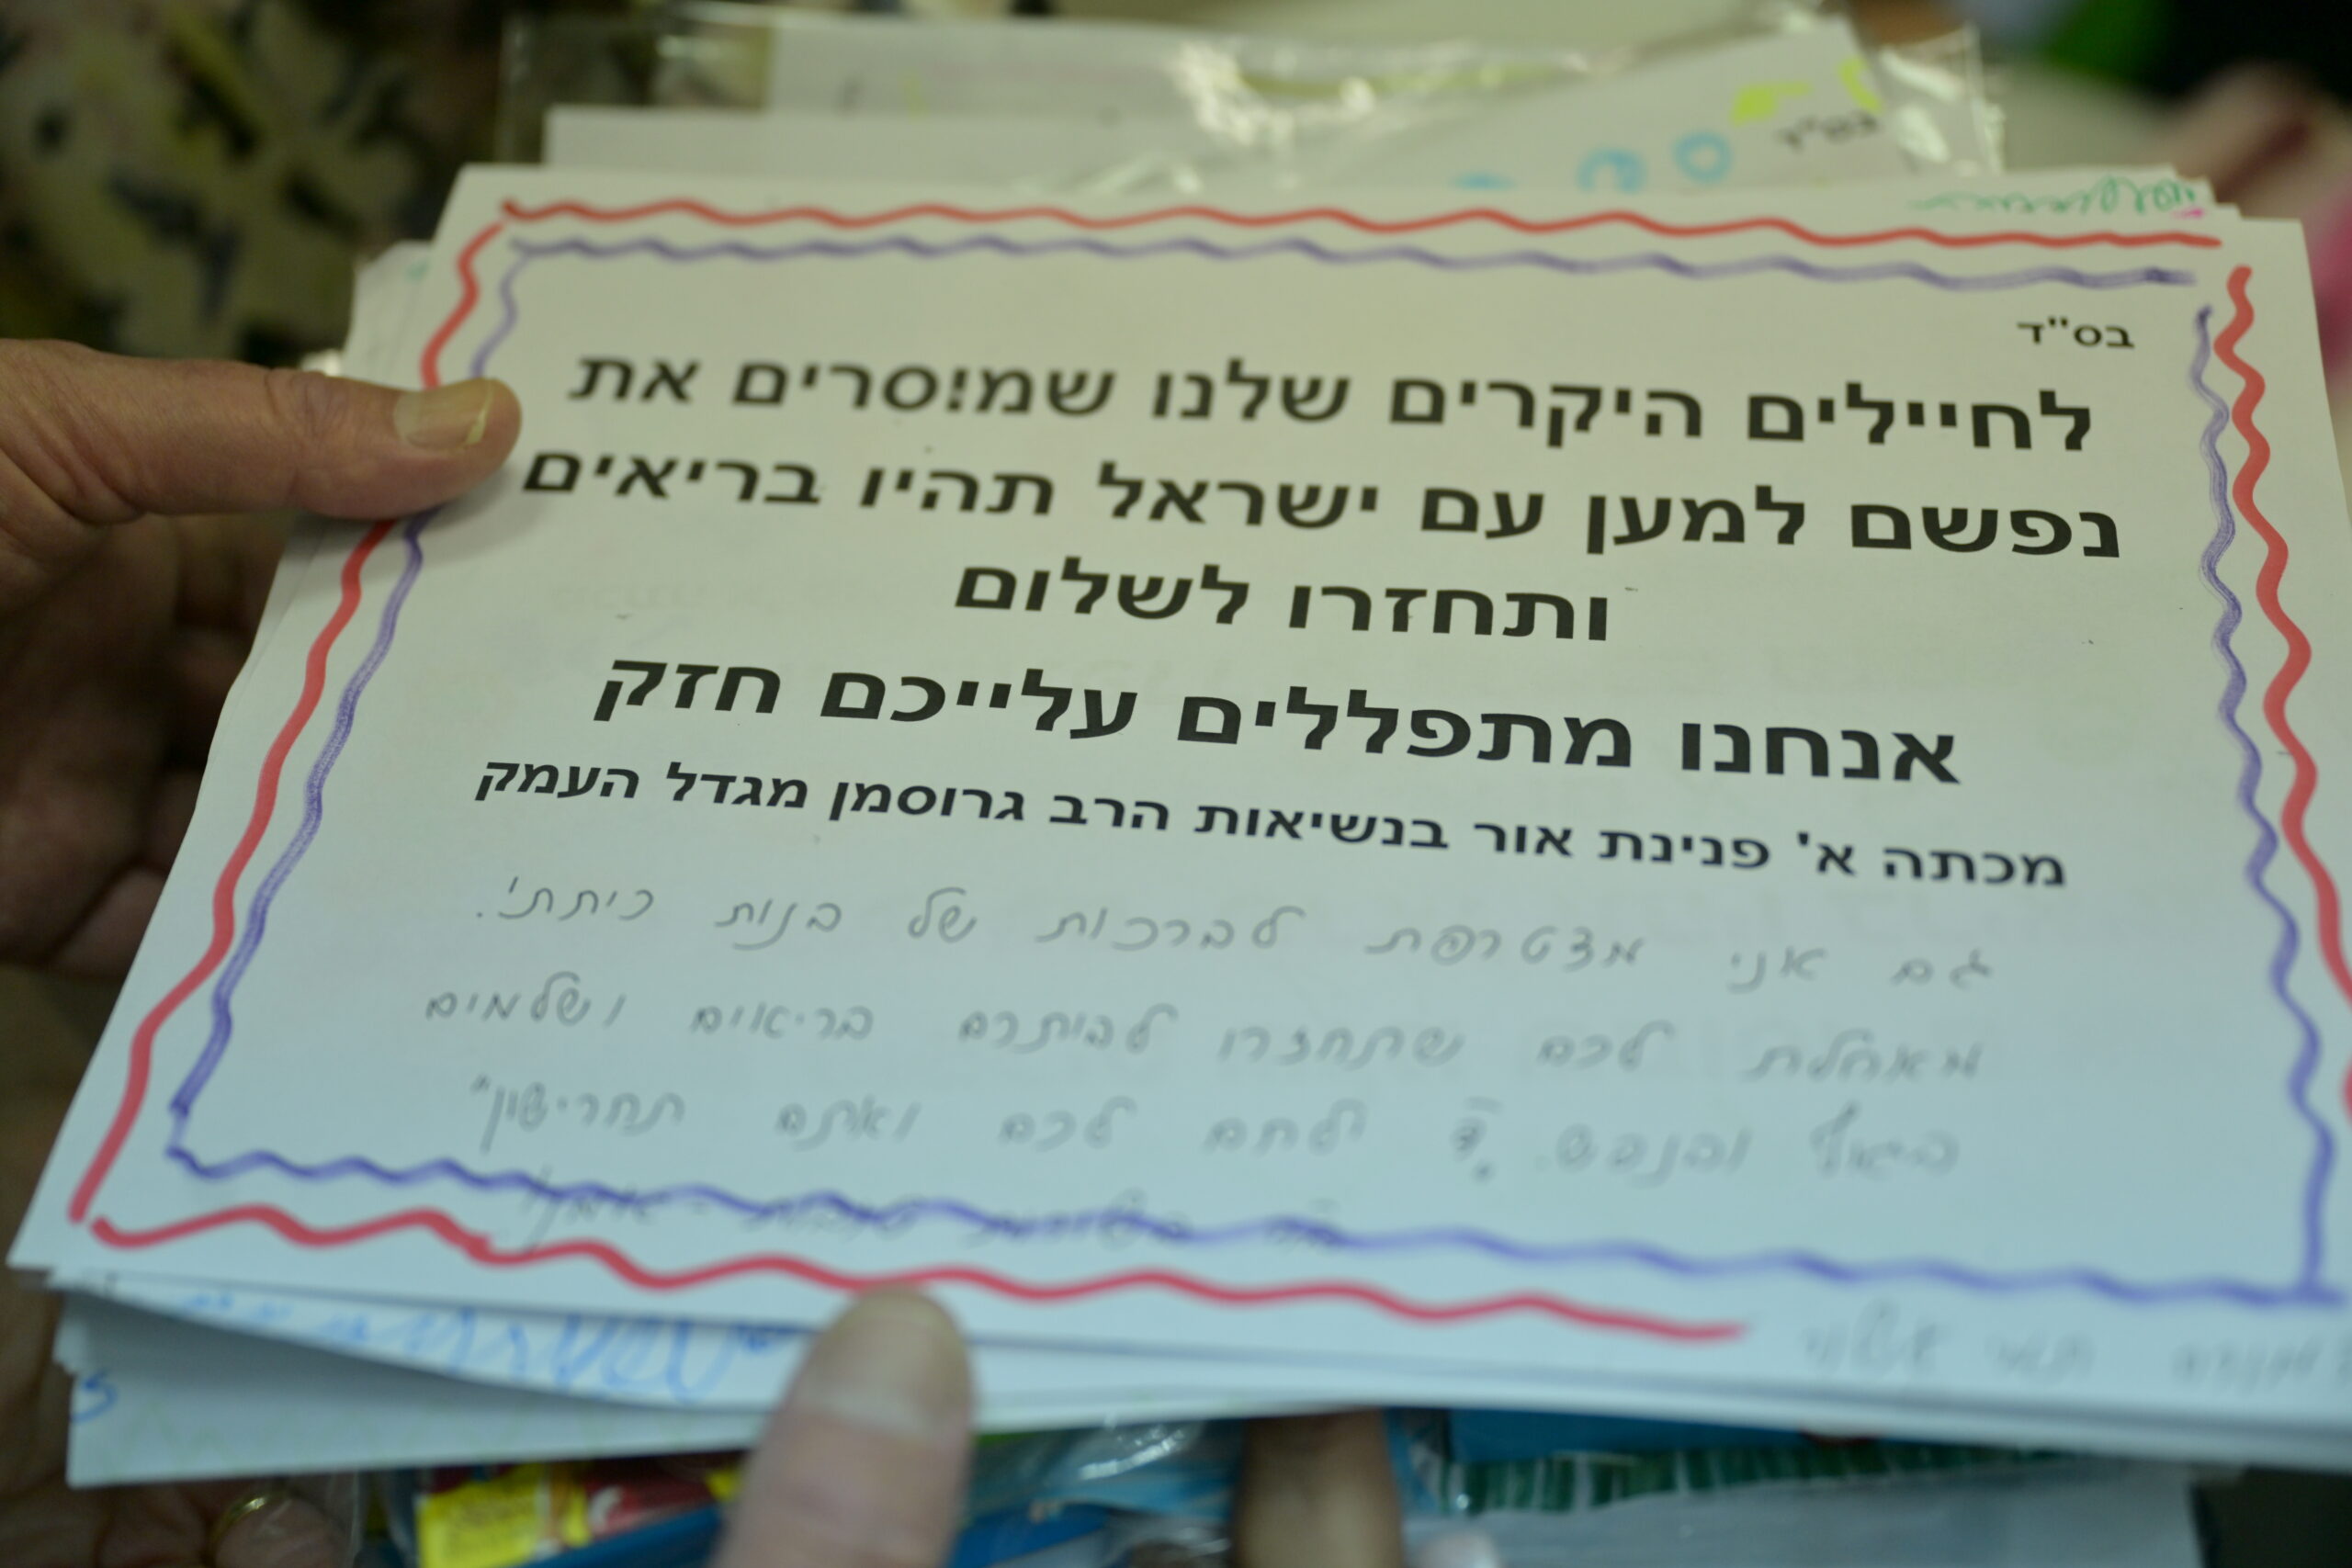 בס"ד
לחיילים היקרים שלנו שמוסרים את
נפשם למען עם ישראל תהיו בריאים
ותחזרו לשלום
אנחנו מתפללים עלייכם חזק
מכתה א' פנינת אור בנשיאות הרב גרוסמן מגדל העמק
גם אני מצטרפת לברכות של בנות כיתתי.
מאחלת לכם שתחזרו לביתכם בריאים ושלמים
בגוף ובנפש. ילחם לכם ואתם תחרישון"
בשורות טובות - אמן!
בס"ד